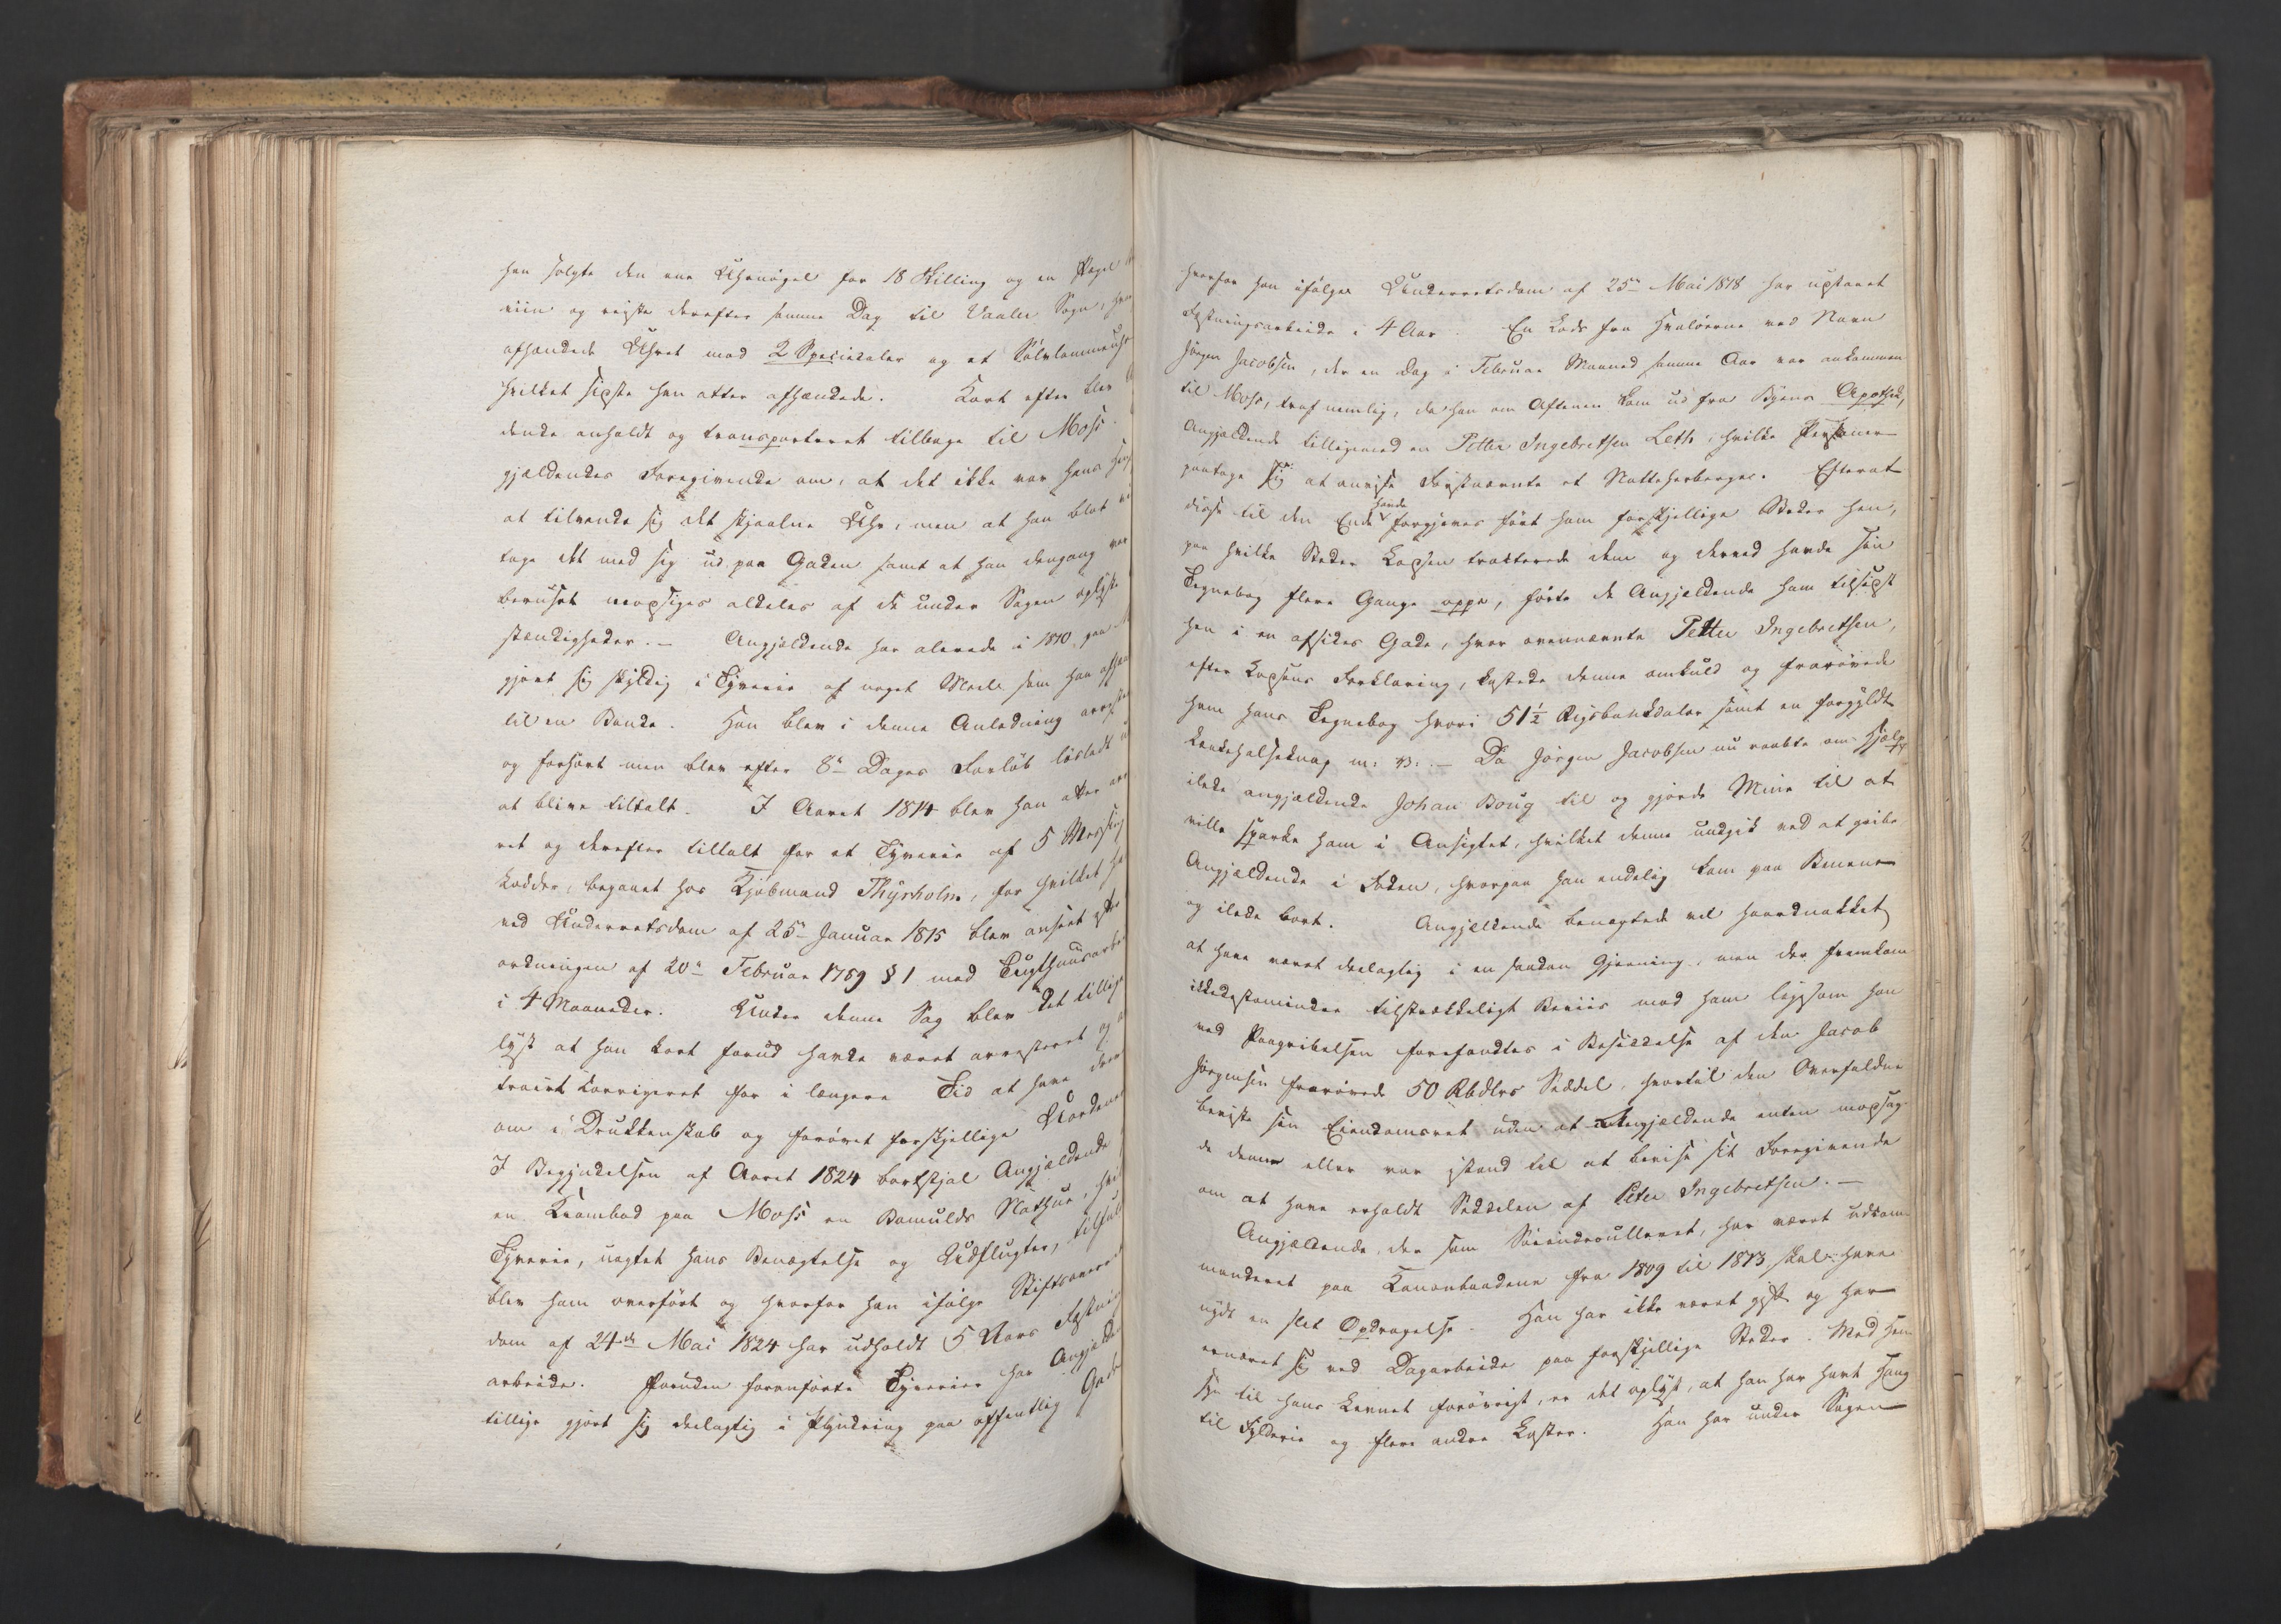 han solgte den ene Uhrnøgel for 18 Skilling og en Pægel
viin og reiste derefter samme Dag til Vaaler Sogn, hvor
afhændede Uhret mod 2 Speciedaler og et Sølvlommeuhr
hvilket sidste han atter afhændede. Kort efter blev
dende anholdt og transporteret tilbage til Moss.
gjældendes Foregivende om, at det ikke var hans Hens
at tilvende sig det stjaalne Uhr, men at han blot
tage det med sig ud paa Gaden samt at han dengang var
beruset modsiges aldeles af de under Sagen oplyste
stændigheder. – Angjældende har alerede i 1810 paa
gjort sig skyldig i Tyverie af noget Meel som han afhæn
til en Bonde. Han blev i denne Anledning arreste
og forhørt men blev efter 8te Dages Forløb løsladt
at blive tiltalt. I Aaret 1814 blev han atter
ret og derefter tiltalt for et Tyverie af 5 Messing
kodder, begaaet hos Kjøbmand Thyrholm, for hvilket
ved Underretsdom af 25de Januar 1815 blev anseet efter
ordningen af 20de Februar 1789 § 1 med Tugthuusarbei
i 4 Maaneder. Under denne Sag blev det tillige
lyst at han kort forud havde været arresteret og
traint korrigeret for i længere Tid at have drev
om i Drukkenskab og forøvet forskjellige Uordener
I Begyndelsen af Aaret 1824 bortstjal Angjældende
en Krambod paa Moss en Bomulds Nathue, hvil
Tyverie, uagtet hans Benægtelse og Udflugter, tilfuld
blev ham overført og hvorfor han ifølge Stiftsoverre
dom af 24de Mai 1824 har udholdt 5 Aars Fæstning
arbeide. Foruden foranførte Tyverier har Angjælde
tillige gjort sig deelagtig i Plyndring paa offentlig Gade
hvorfor han ifølge Underretsdom af 25de Mai 1818 har udstaaet
Fæstningsarbeide i 4 Aar. En Lods fra Hvaløerne ved Navn
Jørgen Jacobsen, der en Dag i Februar Maaned samme Aar var ankommen
til Moss, traf nemlig, da han om Aftenen kom ud fra Byens Apothek,
Angjældende tilligemed en Petter Ingebretsen Leth, hvilke Personer
paatoge sig at anvise Førstnævnte et Natteherberge. Efterat
disse til den Ende havde forgjæves ført ham forskjellige Steder hen,
paa hvilke Steder Lodsen tracterede dem og derved havde sin
Tegnebog flere Gange oppe, førte de Angjældende ham tilsidst
hen i en afsides Gade, hvor ovennævnte Petter Ingebretsen,
efter Lodsens Forklaring, kastede denne omkuld og frarøvede
ham hans Tegnebog hvori 51½ Rigsbankdaler samt en forgyldt
Lenkehalseknap m: v: – Da Jørgen Jacobsen nu raabte om Hjelp
ilede angjældende Johan Boug til og gjorde Mine til at
ville sparke ham i Ansigtet, hvilket denne undgik ved at gribe
Angjældende i Foden, hvorpaa han endelig kom paa Benene
og ilede bort. Angjældende benægtede vel haardnakket
at have været deelagtig i en saadan Gjerning, men der fremkom
ikkedestomindre tilstrækkeligt Beviis mod ham ligesom han
ved Paagribelsen forefandtes i Besiddelse af den Jacob
Jørgensen frarøvede 50 Rbdlrs Seddel, hvortil den Overfaldne
beviste sin Eiendomsret uden at Angjældende enten modsag-
de denne eller var istand til at bevise sit Foregivende
om at have erholdt Seddelen af Peter Ingebretsen. –
Angjældende, der som Søeindroulleret, har været udcom-
manderet paa Kanonbaadene fra 1809 til 1813 skal have
nydt en slet Opdragelse. Han har ikke været gift og har
ernæret sig ved Dagarbeide paa forskjellige Steder. Med Hen-
syn til hans Levnet forøvrigt, er det oplyst, at han har havt Hang
til Fylderie og flere andre Laster. Han har under Sagen